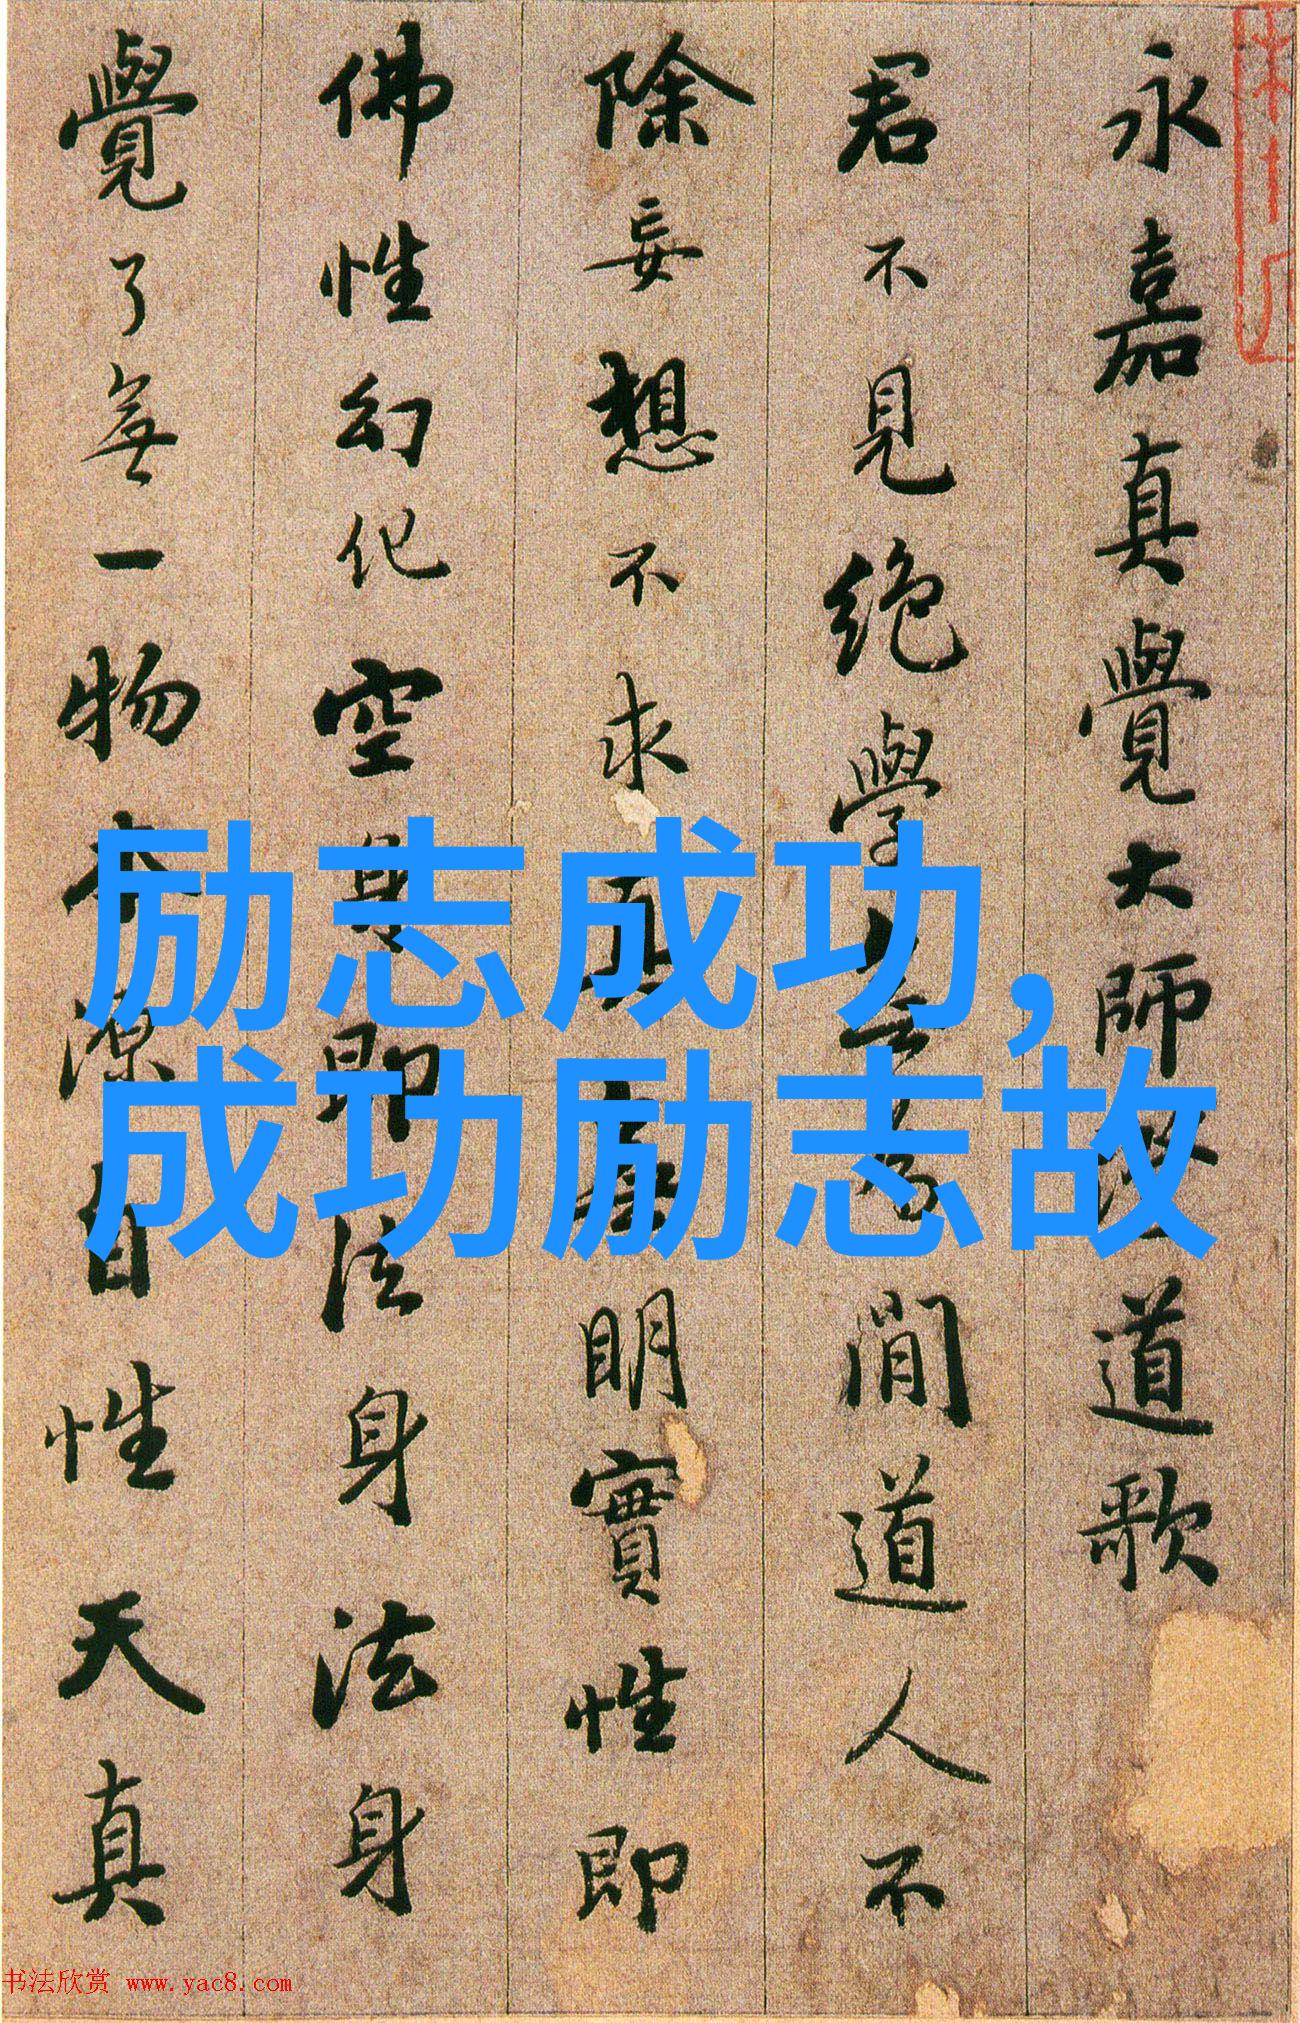 永嘉真覺大師證道歌
君不見絕學無為閒道人不
除妄想不求真無明實性即
佛性幻化空身即法身法身
覺了無一物本源自性天真
励志成功，
成功励志故
书法欣赏 www.yac8.com